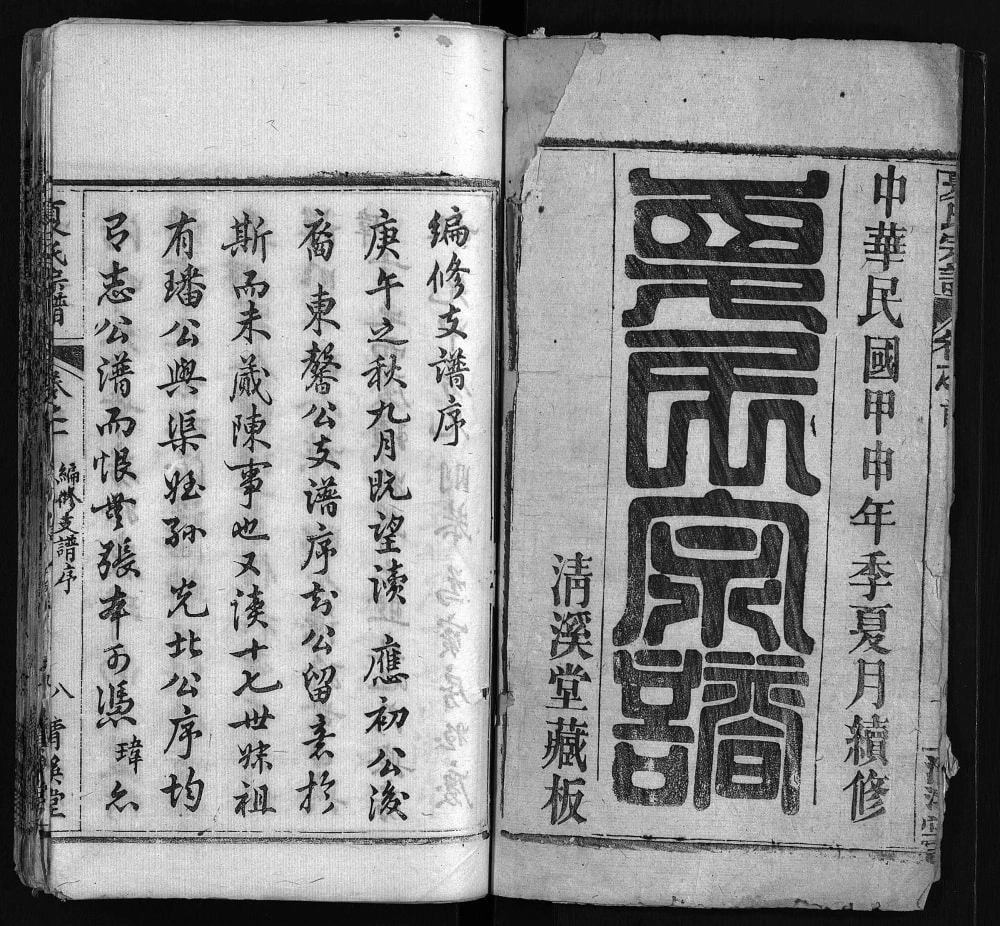 夏氏宗譜
中華民國甲申年季夏月續修
夏氏宗譜
清溪堂藏板
編修支譜序
庚午之秋九月既望讀 應初公後
裔 東馨公支譜序知公留意於
斯而未蕆陳事也又讀十七世姝祖
有璠公與渠姪孫 光北公序均
有志公譜而恨無張本可憑 瑋亦
夏氏宗譜 卷之 編修支譜序 八 清溪堂